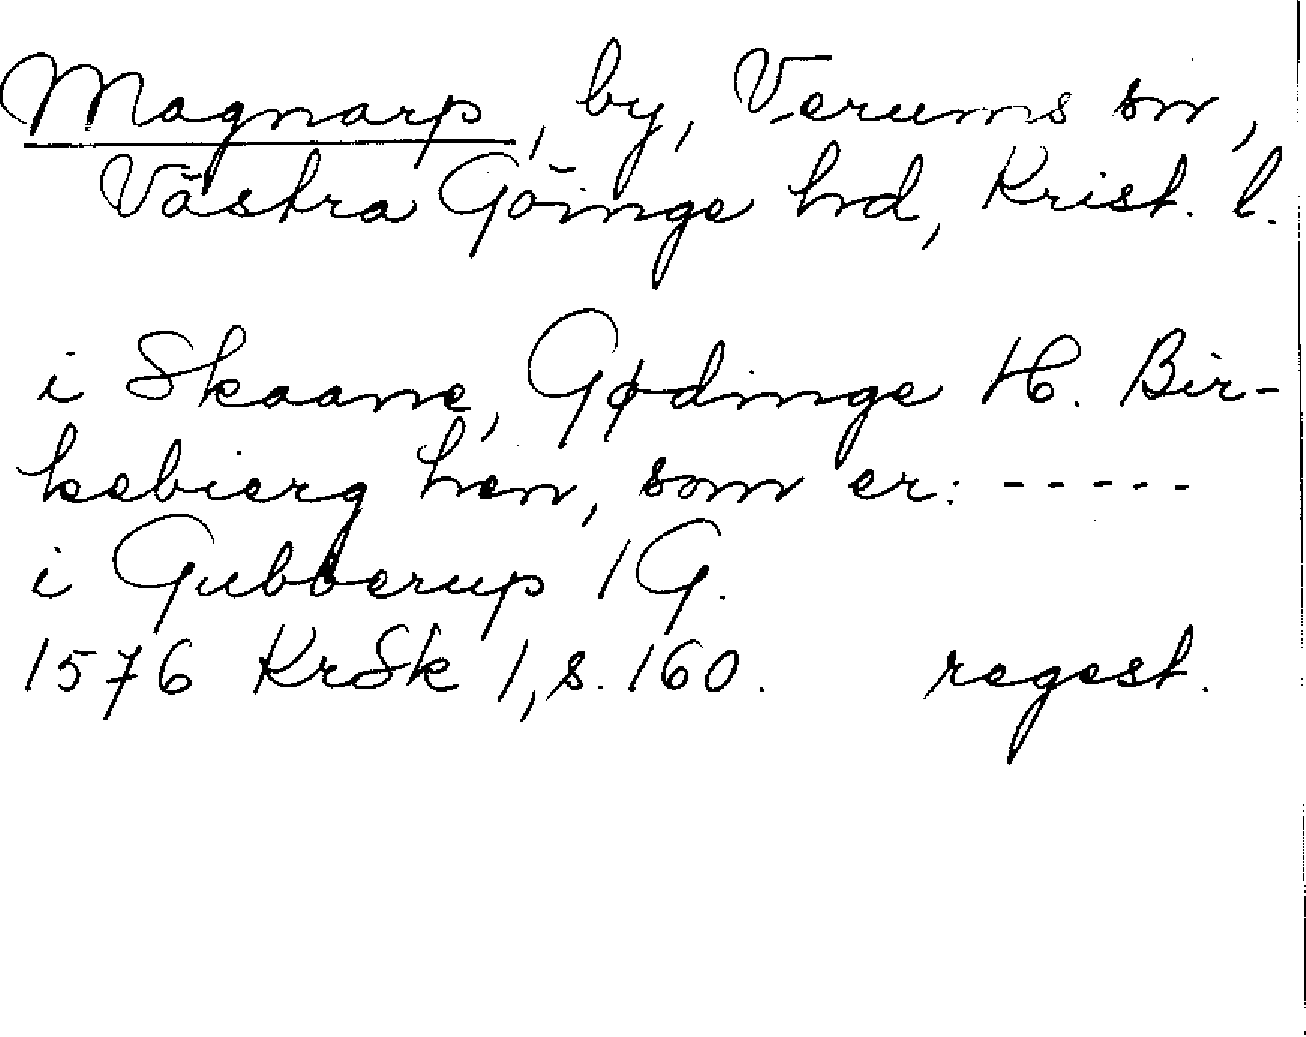 Magnarp, by, Verums sn,
Västra Göinge hd, Krist. l.
i Skaane, Gødinge H. Bir-
kebierg hen, som er: -----
i Gubberup 1 G.
1576 KrSk 1, s. 160. regest.